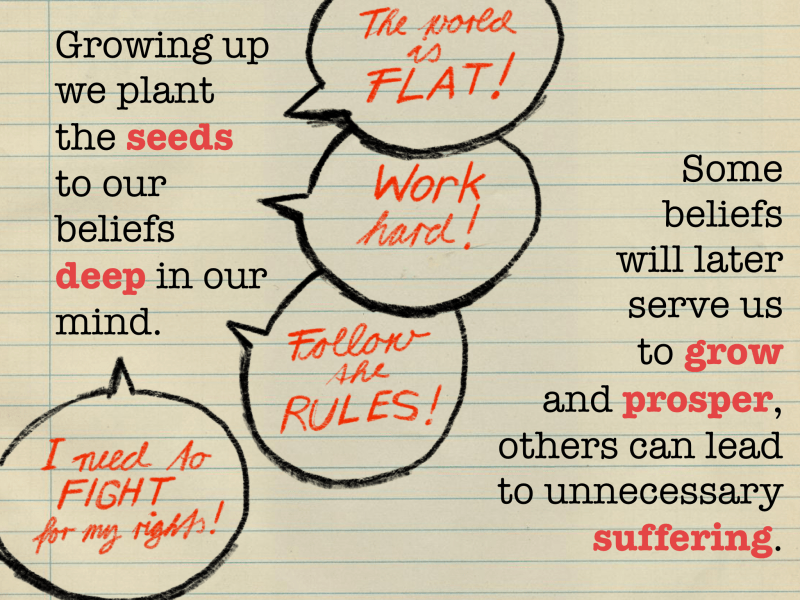 Growing up
we plant
the seeds
to our
beliefs
deep in our
mind.
The world
is
FLAT!
Work
hard!
Follow
the
RULES!
I need to
FIGHT
for my rights!
Some
beliefs
will later
serve us
to grow
and prosper,
others can lead
to unnecessary
suffering.